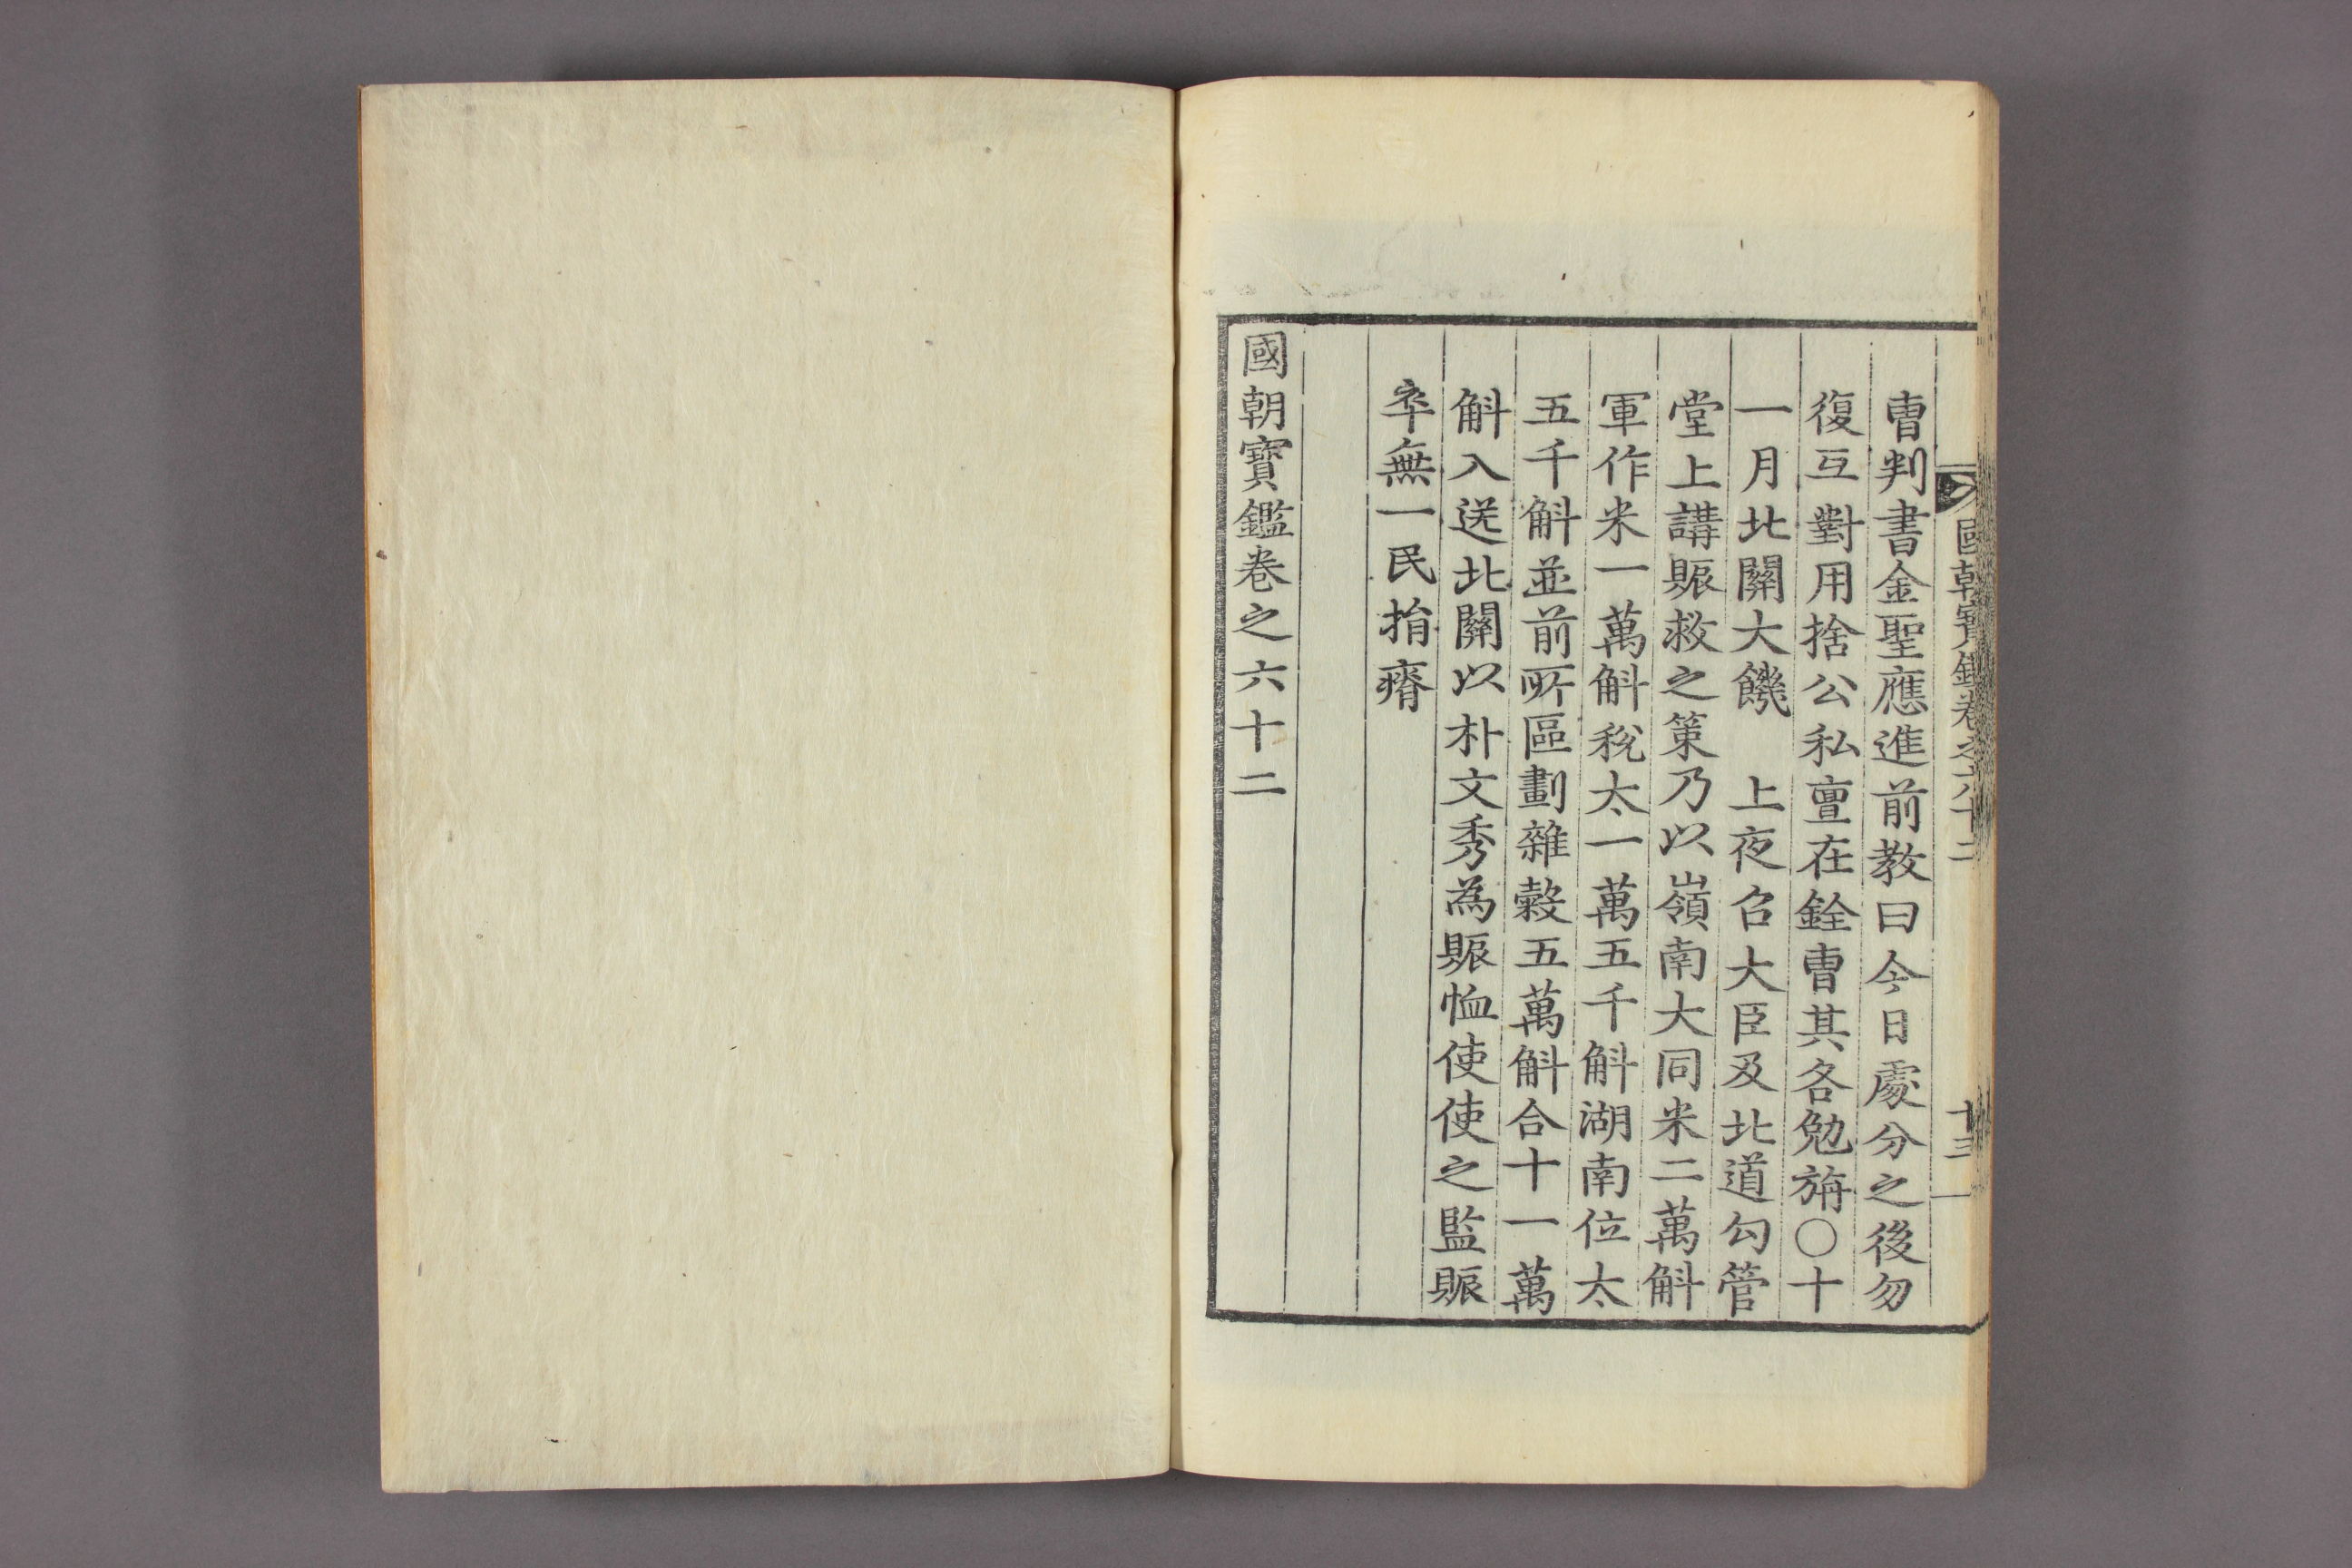 國朝寶鑑卷之六十二 十三
曹判書金聖應進前教曰今日處分之後勿
復互對用捨公私亶在銓曹其各勉旃○十
一月北關大饑 上夜召大臣及北道勾管
堂上講賑救之策乃以嶺南大同米二萬斛
軍作米一萬斛稅太一萬五千斛湖南位太
五千斛並前所區劃雜穀五萬斛合十一萬
斛入送北關以朴文秀為賑恤使使之監賑
卒無一民捐瘠
國朝寶鑑卷之六十二